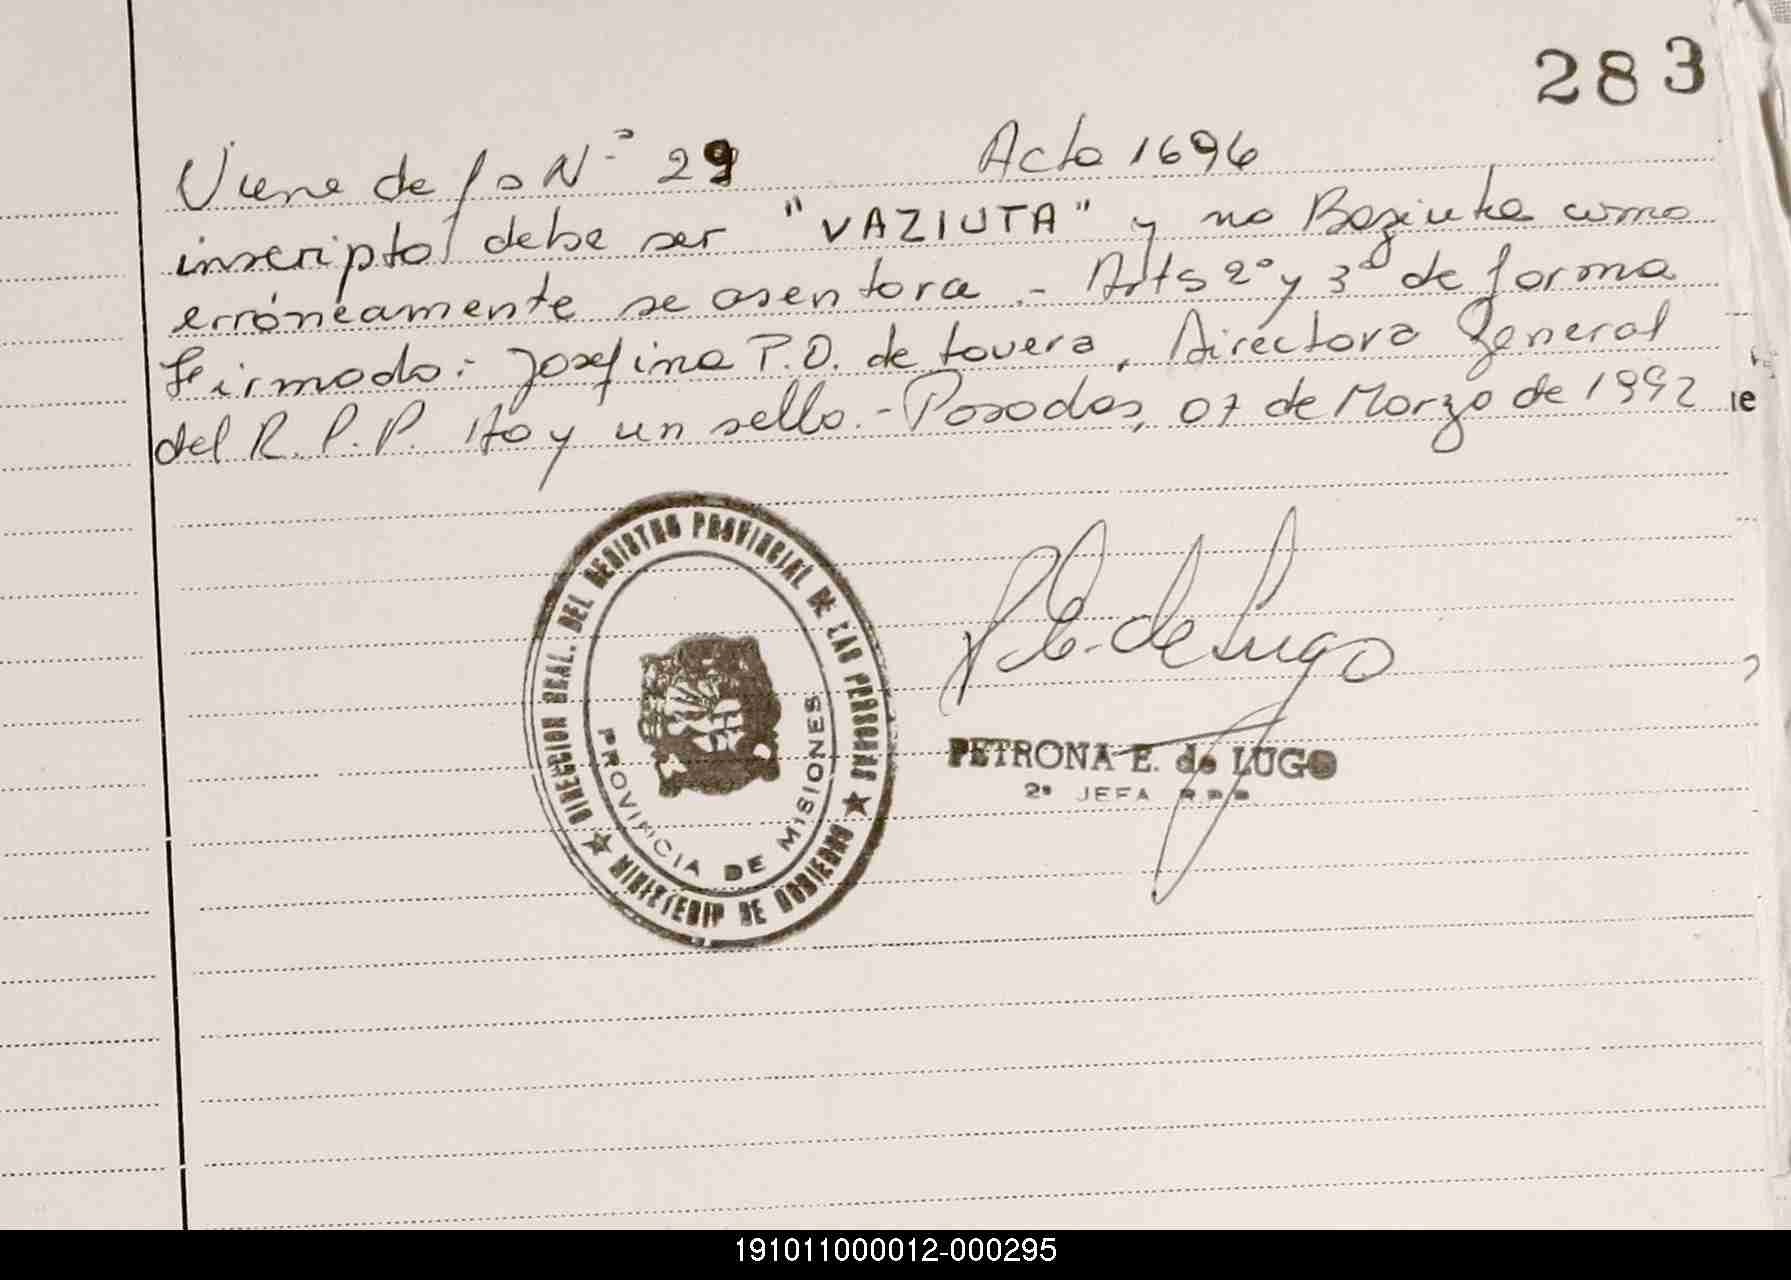 283
Viene de fs Nº 29 Acta 1696
inscripto debe ser "VAZIUTA" y no Baziuta como
erróneamente se asentara.- Arts 2º y 3º de forma
Firmado: Josefina P.O. de tovera, Directora General
del R.P.P. Hay un sello.- Posadas, 07 de Marzo de 1992
DIRECCION GRAL. DEL REGISTRO PROVINCIAL DE LAS PERSONAS
★ MINISTERIO DE GOBIERNO ★
PROVINCIA DE MISIONES
P.E. de Lugo
PETRONA E. de LUGO
2º JEFA R.P.P.
191011000012-000295